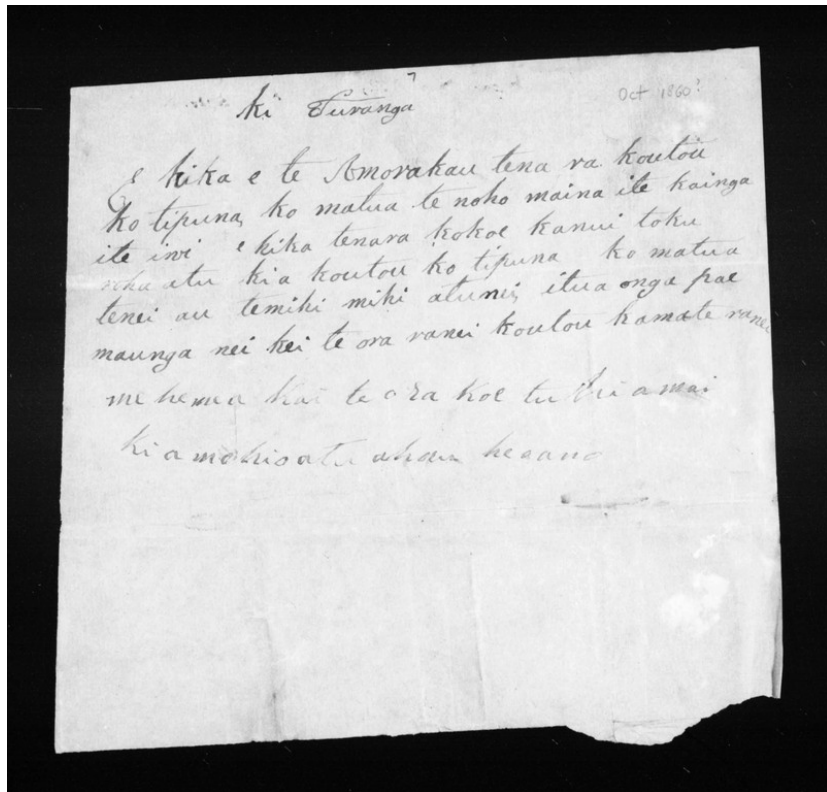 Oct 1860?
ki Turanga
E hika e te Amorakau tena ra koutou
ko tipuna, ko matua te noho maina ite kainga
ite iwi e hika tenara kokoe kanui toku
roha atu kia koutou ko tipuna ko matua
tenei au temihi mihi atunei, itua onga pae
maunga nei kei te ora ranei koutou kamate ranei
me hemea kai te ora koe tuhi a mai
kia mohio atu ahau heaano